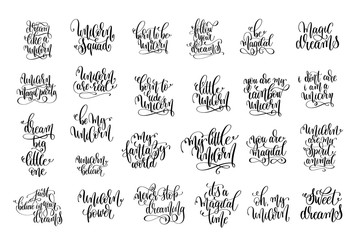 dream
like a
unicorn
unicorn
squad
born to be
unicorn
follow
your
dreams
be
magical
magic
dreams
unicorn
magic party
unicorn
are real
born to
be
unicorn
little
unicorn
you are my
rainbow
unicorn
i don't care
i am a
unicorn
dream
big
little
one
be my
unicorn
unicorn
believer
my
fantasy
world
my little
unicorn
you are
magical
unicorn
are my
spirit
animal
just
believe in your
dreams
unicorn
power
never stop
dreaming
it's a
magical
time
oh, my
unicorn
sweet
dreams